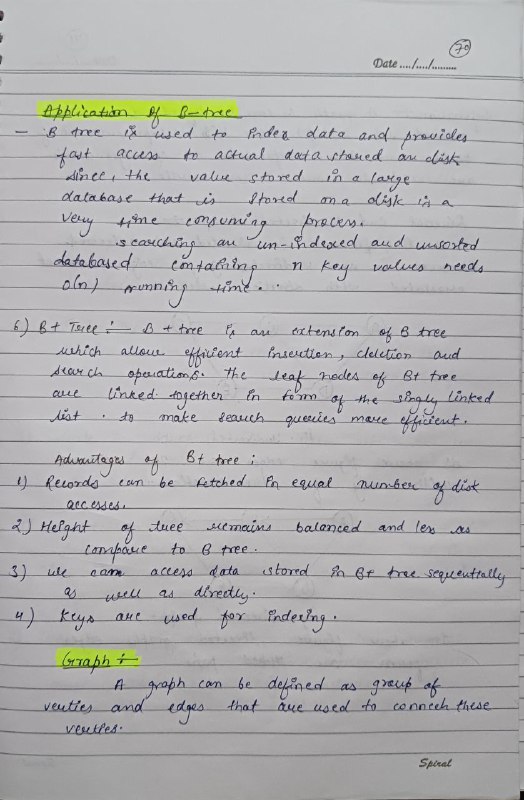 70
Date ..../..../.........
Application of B-tree
- B tree is used to index data and provides
fast access to actual data stored on disk
since, the value stored in a large
database that is stored on a disk is a
very time consuming process.
searching an un-indexed and unsorted
databased containing n key values needs
O(n) running time.
6) B+ Tree :- B + tree is an extension of B tree
which allows efficient insertion, deletion and
search operations. the leaf nodes of B+ tree
are linked together in form of the singly linked
list. to make search queries more efficient.
Advantages of B+ tree :
1) Records can be fetched in equal number of disk
accesses.
2) Height of tree remains balanced and less as
compare to B tree.
3) we can access data stored in B+ tree sequentially
as well as directly.
4) Keys are used for indexing.
Graph :-
A graph can be defined as group of
verties and edges that are used to connect these
verties.
Spiral